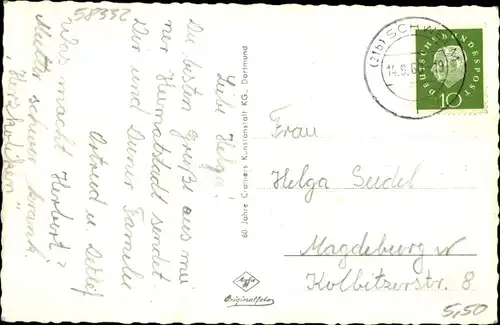 58332
Liebe Helga!
Die besten Grüße aus mei
ner Heimatstadt sendet
Dir und Deiner Familie
Ortrud u. Detlef
Was macht Herbert?
Mutter schwer krank.
60 Jahre Cramers Kunstanstalt KG., Dortmund
Agfa
Originalfoto
(21b) SCHW
14.6.6
DEUTSCHE BUNDESPOST
10
Frau
Helga Seidel
Magdeburg W
Kolbitzerstr. 8
5,50